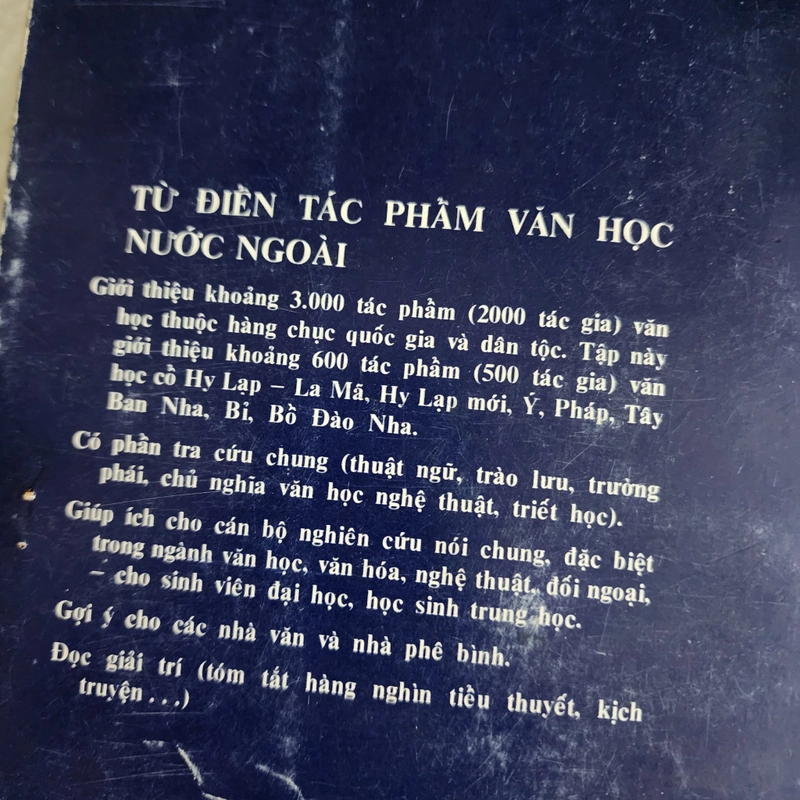 TỪ ĐIỂN TÁC PHẨM VĂN HỌC
NƯỚC NGOÀI
Giới thiệu khoảng 3.000 tác phẩm (2000 tác gia) văn
học thuộc hàng chục quốc gia và dân tộc. Tập này
giới thiệu khoảng 600 tác phẩm (500 tác gia) văn
học cổ Hy Lạp – La Mã, Hy Lạp mới, Ý, Pháp, Tây
Ban Nha, Bỉ, Bồ Đào Nha.
Có phần tra cứu chung (thuật ngữ, trào lưu, trường
phái, chủ nghĩa văn học nghệ thuật, triết học).
Giúp ích cho cán bộ nghiên cứu nói chung, đặc biệt
trong ngành văn học, văn hóa, nghệ thuật, đối ngoại,
– cho sinh viên đại học, học sinh trung học.
Gợi ý cho các nhà văn và nhà phê bình.
Đọc giải trí (tóm tắt hàng nghìn tiểu thuyết, kịch
truyện...)